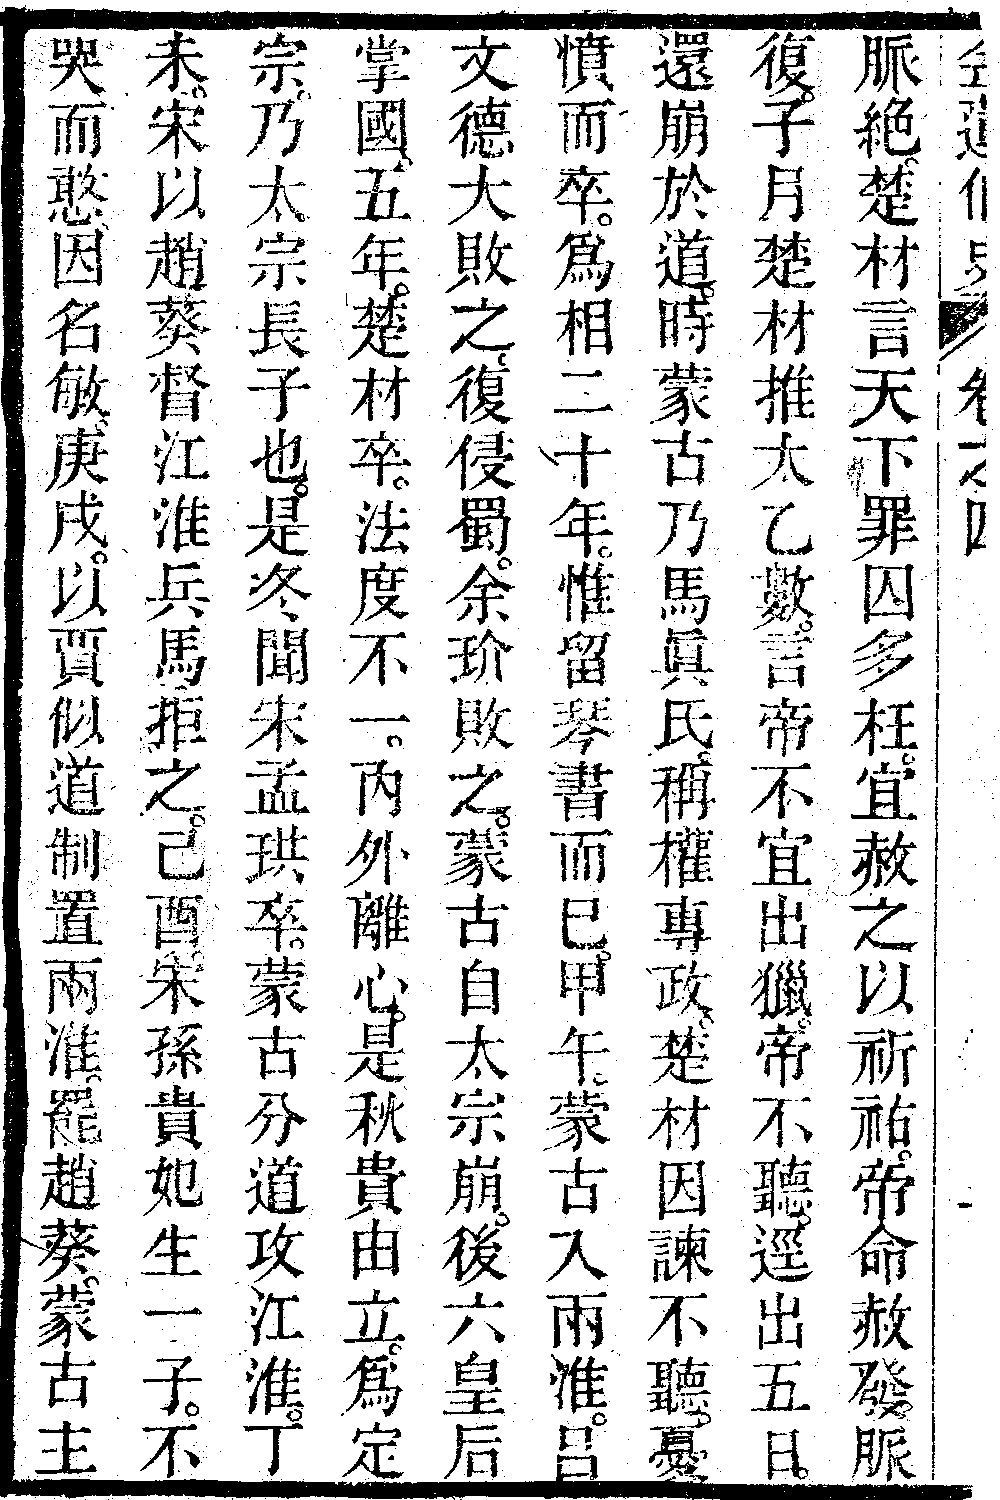 脈絕。楚材言天下罪囚多枉。宜赦之以祈祐。帝命赦發。脈
復。子月楚材推太乙數。言帝不宜出獵。帝不聽。逕出五日。
還崩於道。時蒙古乃馬眞氏。稱權專政。楚材因諫不聽。憂
憤而卒。爲相二十年。惟留琴書而已。甲午。蒙古入兩淮。呂
文德大敗之。復侵蜀。余玠敗之。蒙古自太宗崩。後六皇后
掌國。五年。楚材卒。法度不一。內外離心。是秋貴由立。爲定
宗。乃太宗長子也。是冬聞宋孟珙卒。蒙古分道攻江淮。丁
未。宋以趙葵督江淮兵馬拒之。己酉。宋孫貴妃生一子。不
哭而憨。因名敏。庚戌。以賈似道制置兩淮。罷趙葵。蒙古主